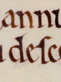 annu
desce